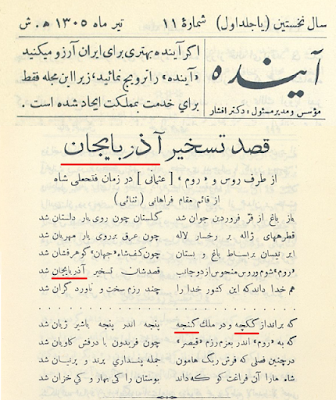 سال نخستین (یا جلد اول) شمارهٔ ۱۱ تیر ماه ۱۳۰۵ ه. ش
آینده
مؤسس و مدیر مسئول: دکتر افشار
اگر آینده بهتری برای ایران آرزو میکنید
«آینده» را ترویج نمائید، زیرا این مجله فقط
برای خدمت بمملکت ایجاد شده است.
قصد تسخیر آذربایجان
از طرف روس و «روم» [عثمانی] در زمان فتحعلی شاه
از قائم مقام فراهانی (ثنائی)
باز باغ از فرّ فروردین جوان شد گلستان چون روی یار داستان شد
قطره‌های ژاله بر رخسار لاله چون عرق برروی یار مهربان شد
ابر نیسان بر بساط باغ و بستان چون کف شاه جهان گوهر فشان شد
«روم» شوم و روس منحوس از دو جانب قصدشان تسخیر آذربایجان شد
هم خدا داند که این کشور خدا را چند رزم سخت و ناورد گران شد
که بر انداز گکچه و در ملک گنجه پنجه اندر پنجه با شیر ژیان شد
که به «روم» اندر بعزم رزم «قیصر» چون فریدون با درفش کاویان شد
در چنین فصلی که فرش رنگ هامون جمله پنداری پرند و پرنیان شد
شاه ما را آن فراغت کو که داند بوستان را کی بهار و کی خزان شد